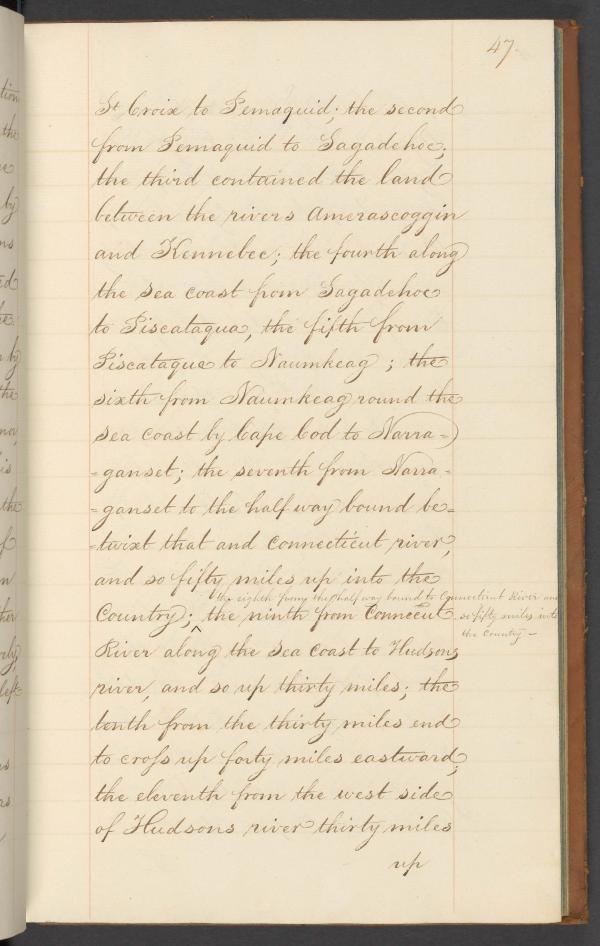 47.
St Croix to Pemaquid; the second
from Pemaquid to Sagadehoc;
the third contained the land
between the rivers Amerascoggin
and Kennebec; the fourth along
the sea coast from Sagadehoc
to Piscataqua, the fifth from
Piscataqua to Naumkeag; the
sixth from Naumkeag round the
sea coast by Cape Cod to Narra-
-ganset; the seventh from Narra-
-ganset to the half way bound be-
-twixt that and Connecticut river,
and so fifty miles up into the
the eighth from the half way bound to Connecticut River and
so fifty miles into
the Country -
Country; ‸ the ninth from Connecut
River along the sea coast to Hudsons
river, and so up thirty miles; the
tenth from the thirty miles end
to cross up forty miles eastward;
the eleventh from the west side
of Hudsons river thirty miles
up